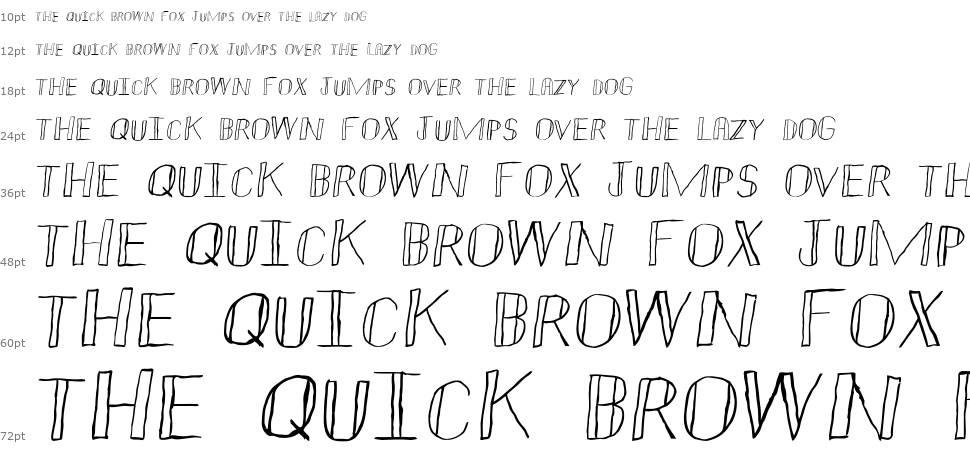 10pt THE QUICK BROWN FOX JUMPS OVER THE LAZY DOG
12pt THE QUICK BROWN FOX JUMPS OVER THE LAZY DOG
18pt THE QUICK BROWN FOX JUMPS OVER THE LAZY DOG
24pt THE QUICK BROWN FOX JUMPS OVER THE LAZY DOG
36pt THE QUICK BROWN FOX JUMPS OVER TH
48pt THE QUICK BROWN FOX JUMP
60pt THE QUICK BROWN FOX
72pt THE QUICK BROWN F